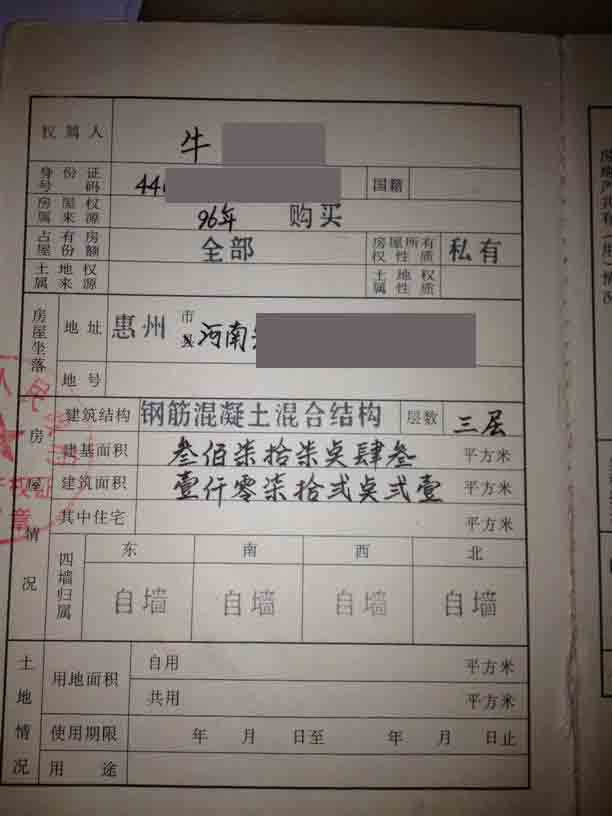 权属人 牛
身份证号码 44 国籍
房屋权属来源 96年 购买
占有房屋份额 全部 房屋所有权性质 私有
土地权属来源 土地权属性质
房屋坐落 地址 惠州 市县 河南
地号
房屋情况 建筑结构 钢筋混凝土混合结构 层数 三层
建基面积 叁佰柒拾柒点肆叁 平方米
建筑面积 壹仟零柒拾弍点弍壹 平方米
其中住宅 平方米
四墙归属 东 南 西 北
自墙 自墙 自墙 自墙
土地情况 用地面积 自用 平方米
共用 平方米
使用期限 年 月 日至 年 月 日止
用途